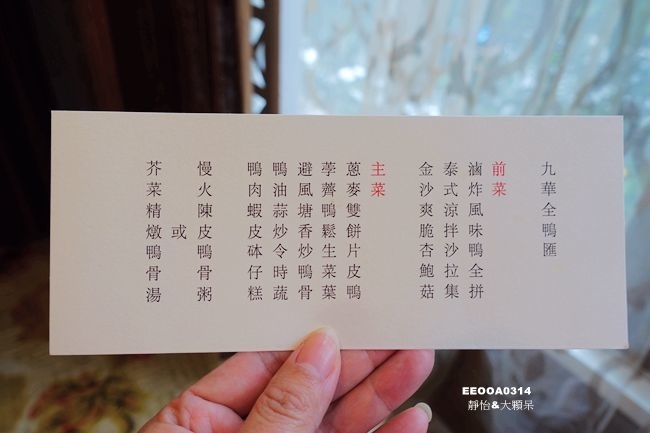 九華全鴨匯
前菜
滷炸風味鴨全拼
泰式涼拌沙拉集
金沙爽脆杏鮑菇
主菜
蔥麥雙餅片皮鴨
荸薺鴨鬆生菜葉
避風塘香炒鴨骨
鴨油蒜炒令時蔬
鴨肉蝦皮砵仔糕
慢火陳皮鴨骨粥
或
芥菜精燉鴨骨湯
EEOOA0314
靜怡&大顆呆